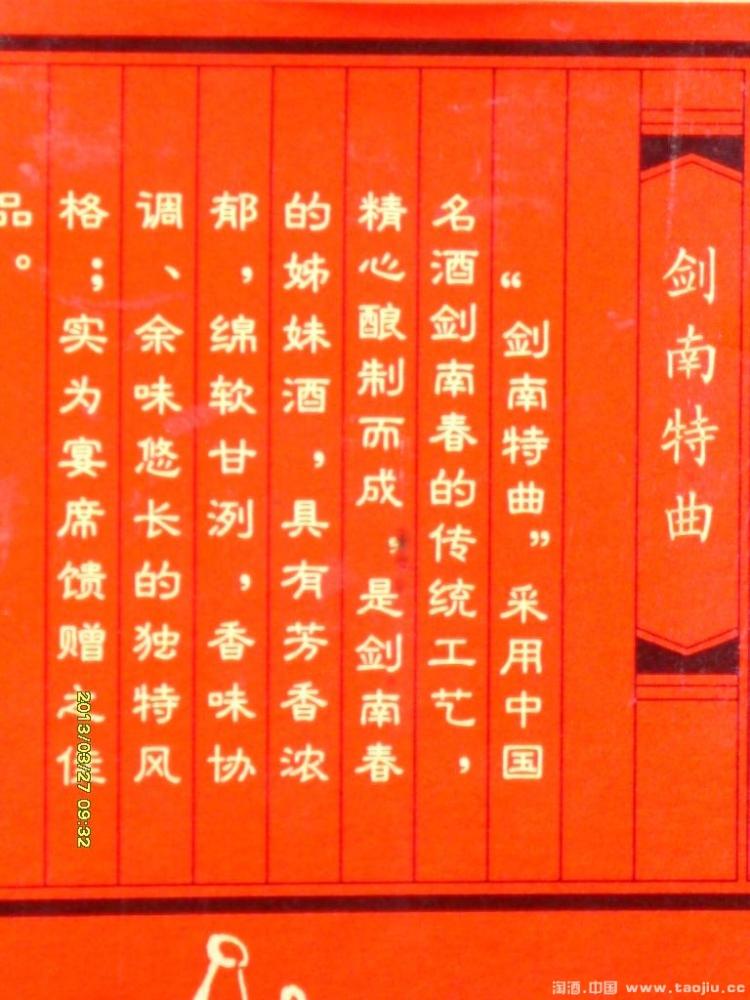 剑南特曲
“剑南特曲”采用中国
名酒剑南春的传统工艺，
精心酿制而成，是剑南春
的姊妹酒，具有芳香浓
郁，绵软甘洌，香味协
调、余味悠长的独特风
格；实为宴席馈赠之佳
品。
2013/03/27 09:32
淘酒.中国 www.taojiu.cc